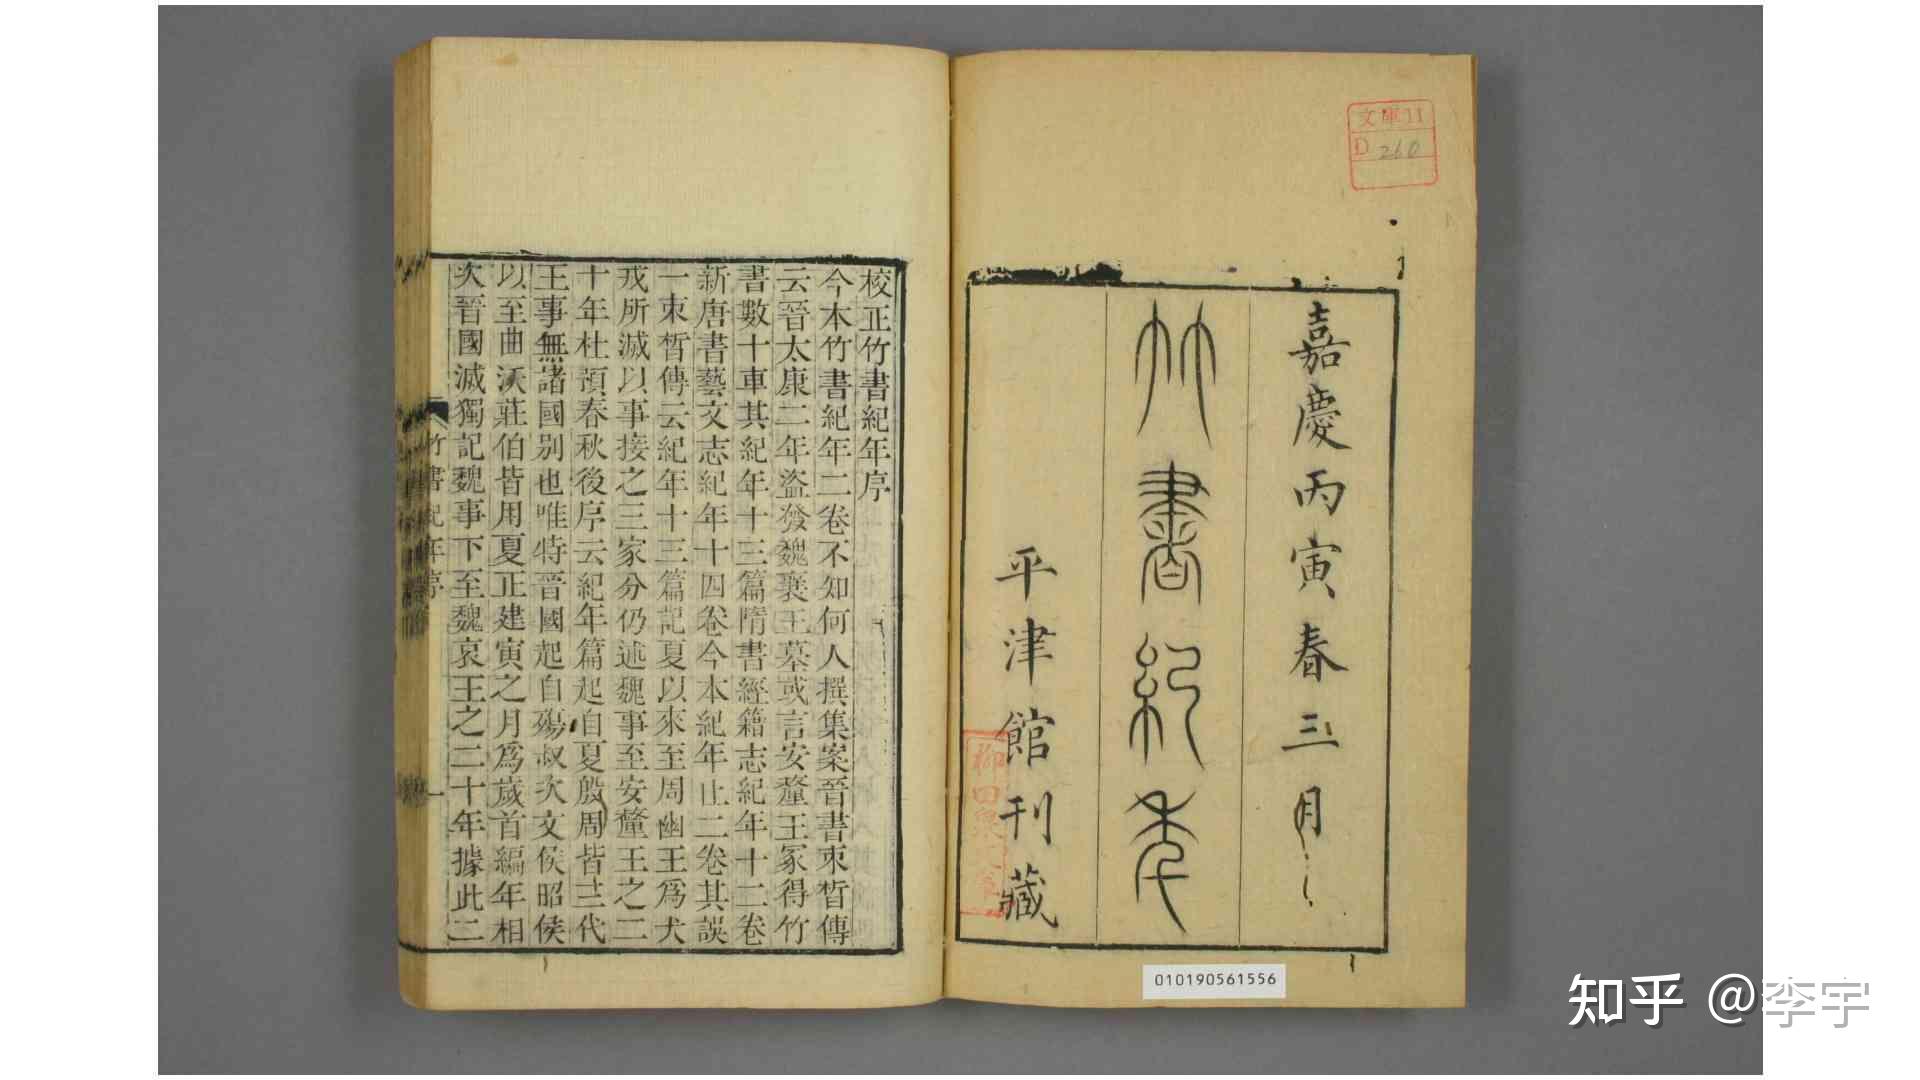 文庫11
D 260
嘉慶丙寅春三月
竹書紀年
平津館刊藏
校正竹書紀年序
今本竹書紀年二卷不知何人撰集案晉書束晳傳
云晉太康二年盜發魏襄王墓或言安釐王冢得竹
書數十車其紀年十三篇隋書經籍志紀年十二卷
新唐書藝文志紀年十四卷今本紀年止二卷其誤
一束晳傳云紀年十三篇記夏以來至周幽王爲犬
戎所滅以事接之三家分仍述魏事至安釐王之二
十年杜預春秋後序云紀年篇起自夏殷周皆三代
王事無諸國别也唯特晉國起自殤叔次文侯昭侯
以至曲沃莊伯皆用夏正建寅之月爲歲首編年相
次晉國滅獨記魏事下至魏哀王之二十年據此二
竹書紀年序
一
010190561556
知乎 @李宇